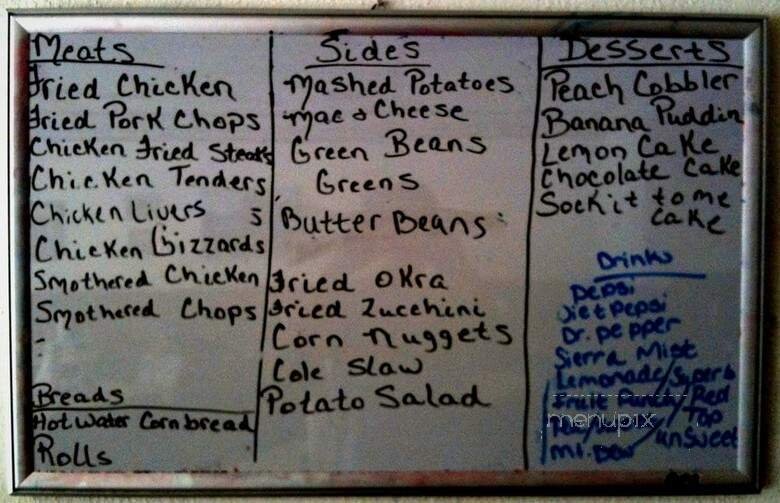 Meats
Fried Chicken
Fried Pork Chops
Chicken Fried Steaks
Chicken Tenders
Chicken Livers 5
Chicken Gizzards
Smothered Chicken
Smothered Chops
Breads
Hot Water Cornbread
Rolls
Sides
Mashed Potatoes
Mac & Cheese
Green Beans
Greens
Butter Beans
Fried Okra
Fried Zucchini
Corn Nuggets
Cole Slaw
Potato Salad
Desserts
Peach Cobbler
Banana Puddin
Lemon Cake
Chocolate Cake
Sock it to me
Cake
Drinks
Pepsi
Diet Pepsi
Dr. Pepper
Sierra Mist
Lemonade/Superb
Fruit / Red
Top
unsweet
Mt. Dew
menupix